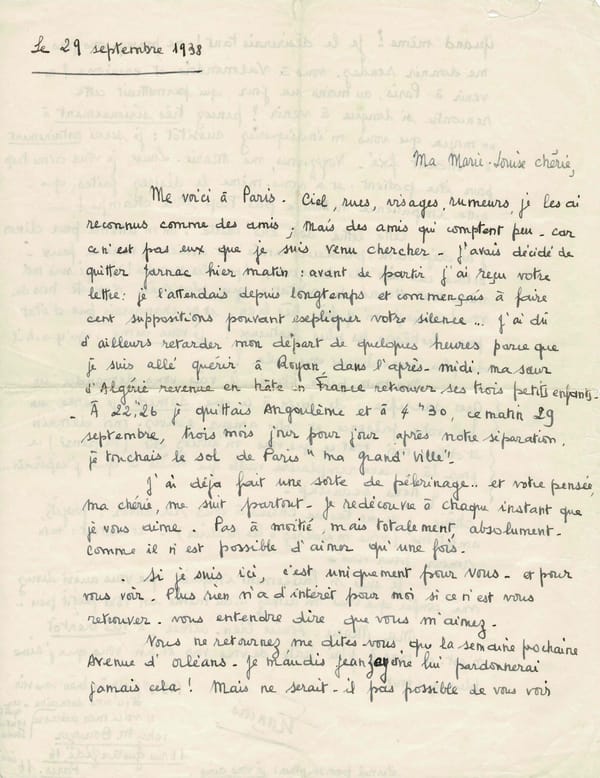 Le 29 septembre 1938
Ma Marie-Louise chérie,
Me voici à Paris - Ciel, rues, visages, rumeurs, je les ai
reconnus comme des amis, mais des amis qui comptent peu - car
ce n'est pas eux que je suis venu chercher - J'avais décidé de
quitter Jarnac hier matin : avant de partir j'ai reçu votre
lettre : je l'attendais depuis longtemps et commençais à faire
cent suppositions pouvant expliquer votre silence ... J'ai dû
d'ailleurs retarder mon départ de quelques heures parce que
je suis allé quérir à Royan, dans l'après-midi, ma sœur
d'Algérie revenue en hâte en France retrouver ses trois petits enfants -
- À 22h26 je quittais Angoulême et à 4h30, ce matin 29
septembre, trois mois jour pour jour après notre séparation,
je touchais le sol de Paris "ma grand' ville" !
J'ai déja fait une sorte de pélerinage .. et votre pensée,
ma chérie, me suit partout - Je redécouvre à chaque instant que
je vous aime - Pas à moitié, mais totalement, absolument -
comme il n'est possible d'aimer qu'une fois -
. Si je suis ici, c'est uniquement pour vous - et pour
vous voir - Plus rien n'a d'intérêt pour moi si ce n'est vous
retrouver - vous entendre dire que vous m'aimez -
Vous ne retournez me dites-vous, que la semaine prochaine
Avenue d'Orléans - Je maudis Jean Zay one lui pardonnerai
jamais cela ! Mais ne serait-il pas possible de vous voir